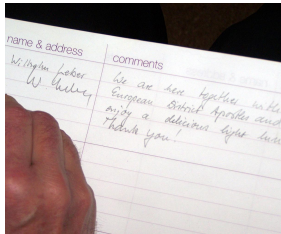 name & address
comments
Wilhelm Leber
W. Leber
We are here together with
European District Apostles and
enjoy a delicious light lunch
Thank you!